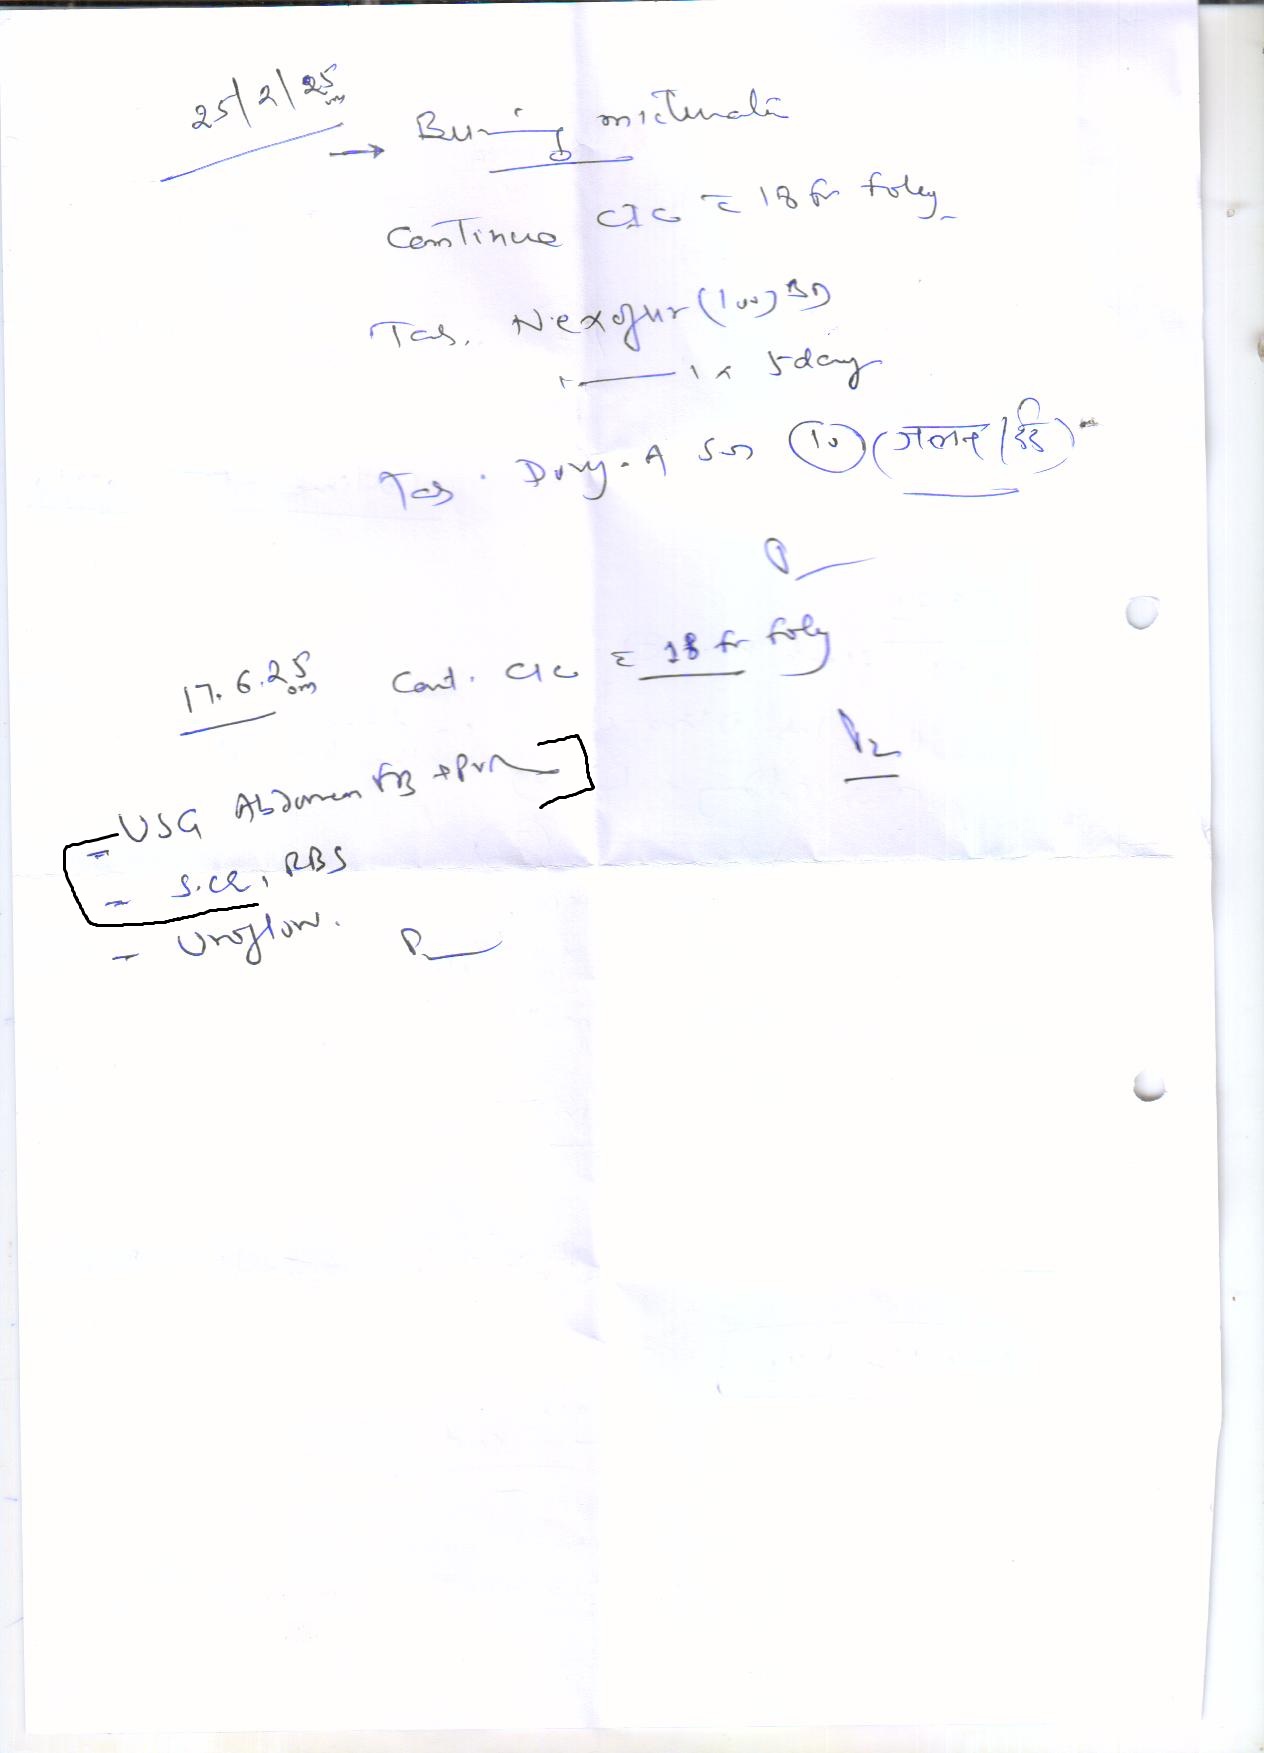 25/2/25
→ Burning micturati
Continue CIC c̄ 18 fr foley
Tab. Nexofur (100) BD
1 x 5 day
Tab. Dvry-A SOS (10) (जलन/दर्द)
17.6.25 Cont. CIC c̄ 18 fr foley
- USG Abdomen FB + PVR
- S.CR, RBS
- Uroflow.